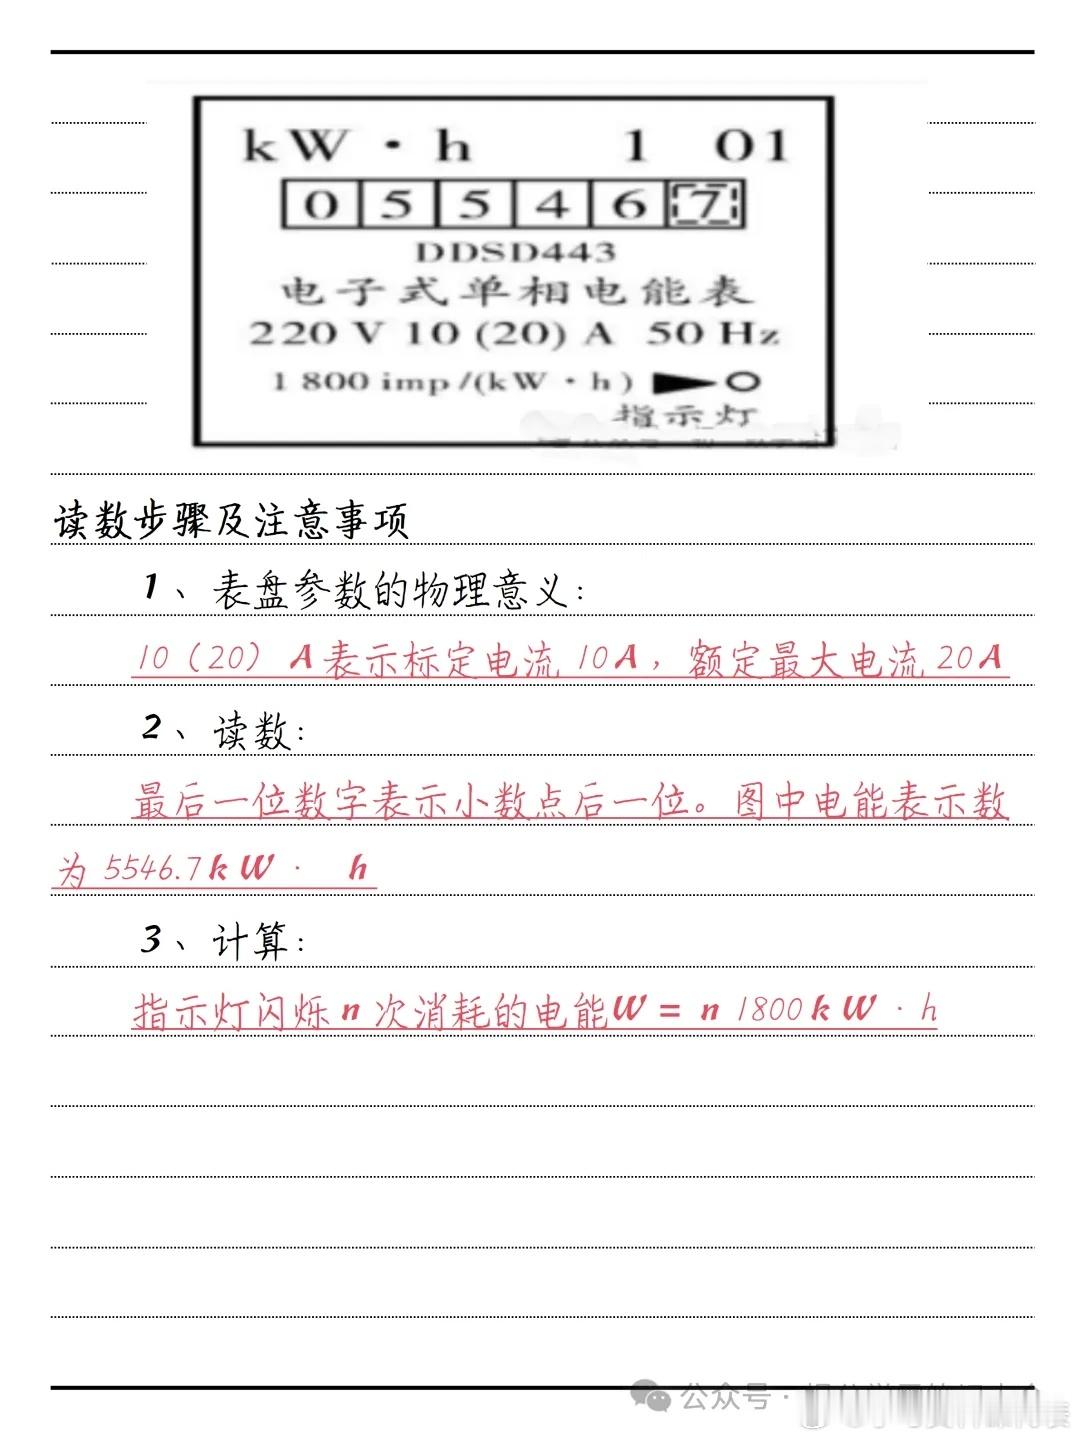 kW·h 1 01
0 5 5 4 6 7
DDSD443
电子式单相电能表
220 V 10 (20) A 50 Hz
1 800 imp/(kW·h)
指示灯
读数步骤及注意事项
1、表盘参数的物理意义:
10（20） A表示标定电流 10A，额定最大电流 20A
2、读数:
最后一位数字表示小数点后一位。图中电能表示数
为 5546.7kW· h
3、计算:
指示灯闪烁n 次消耗的电能W = n 1800kW·h
公众号·